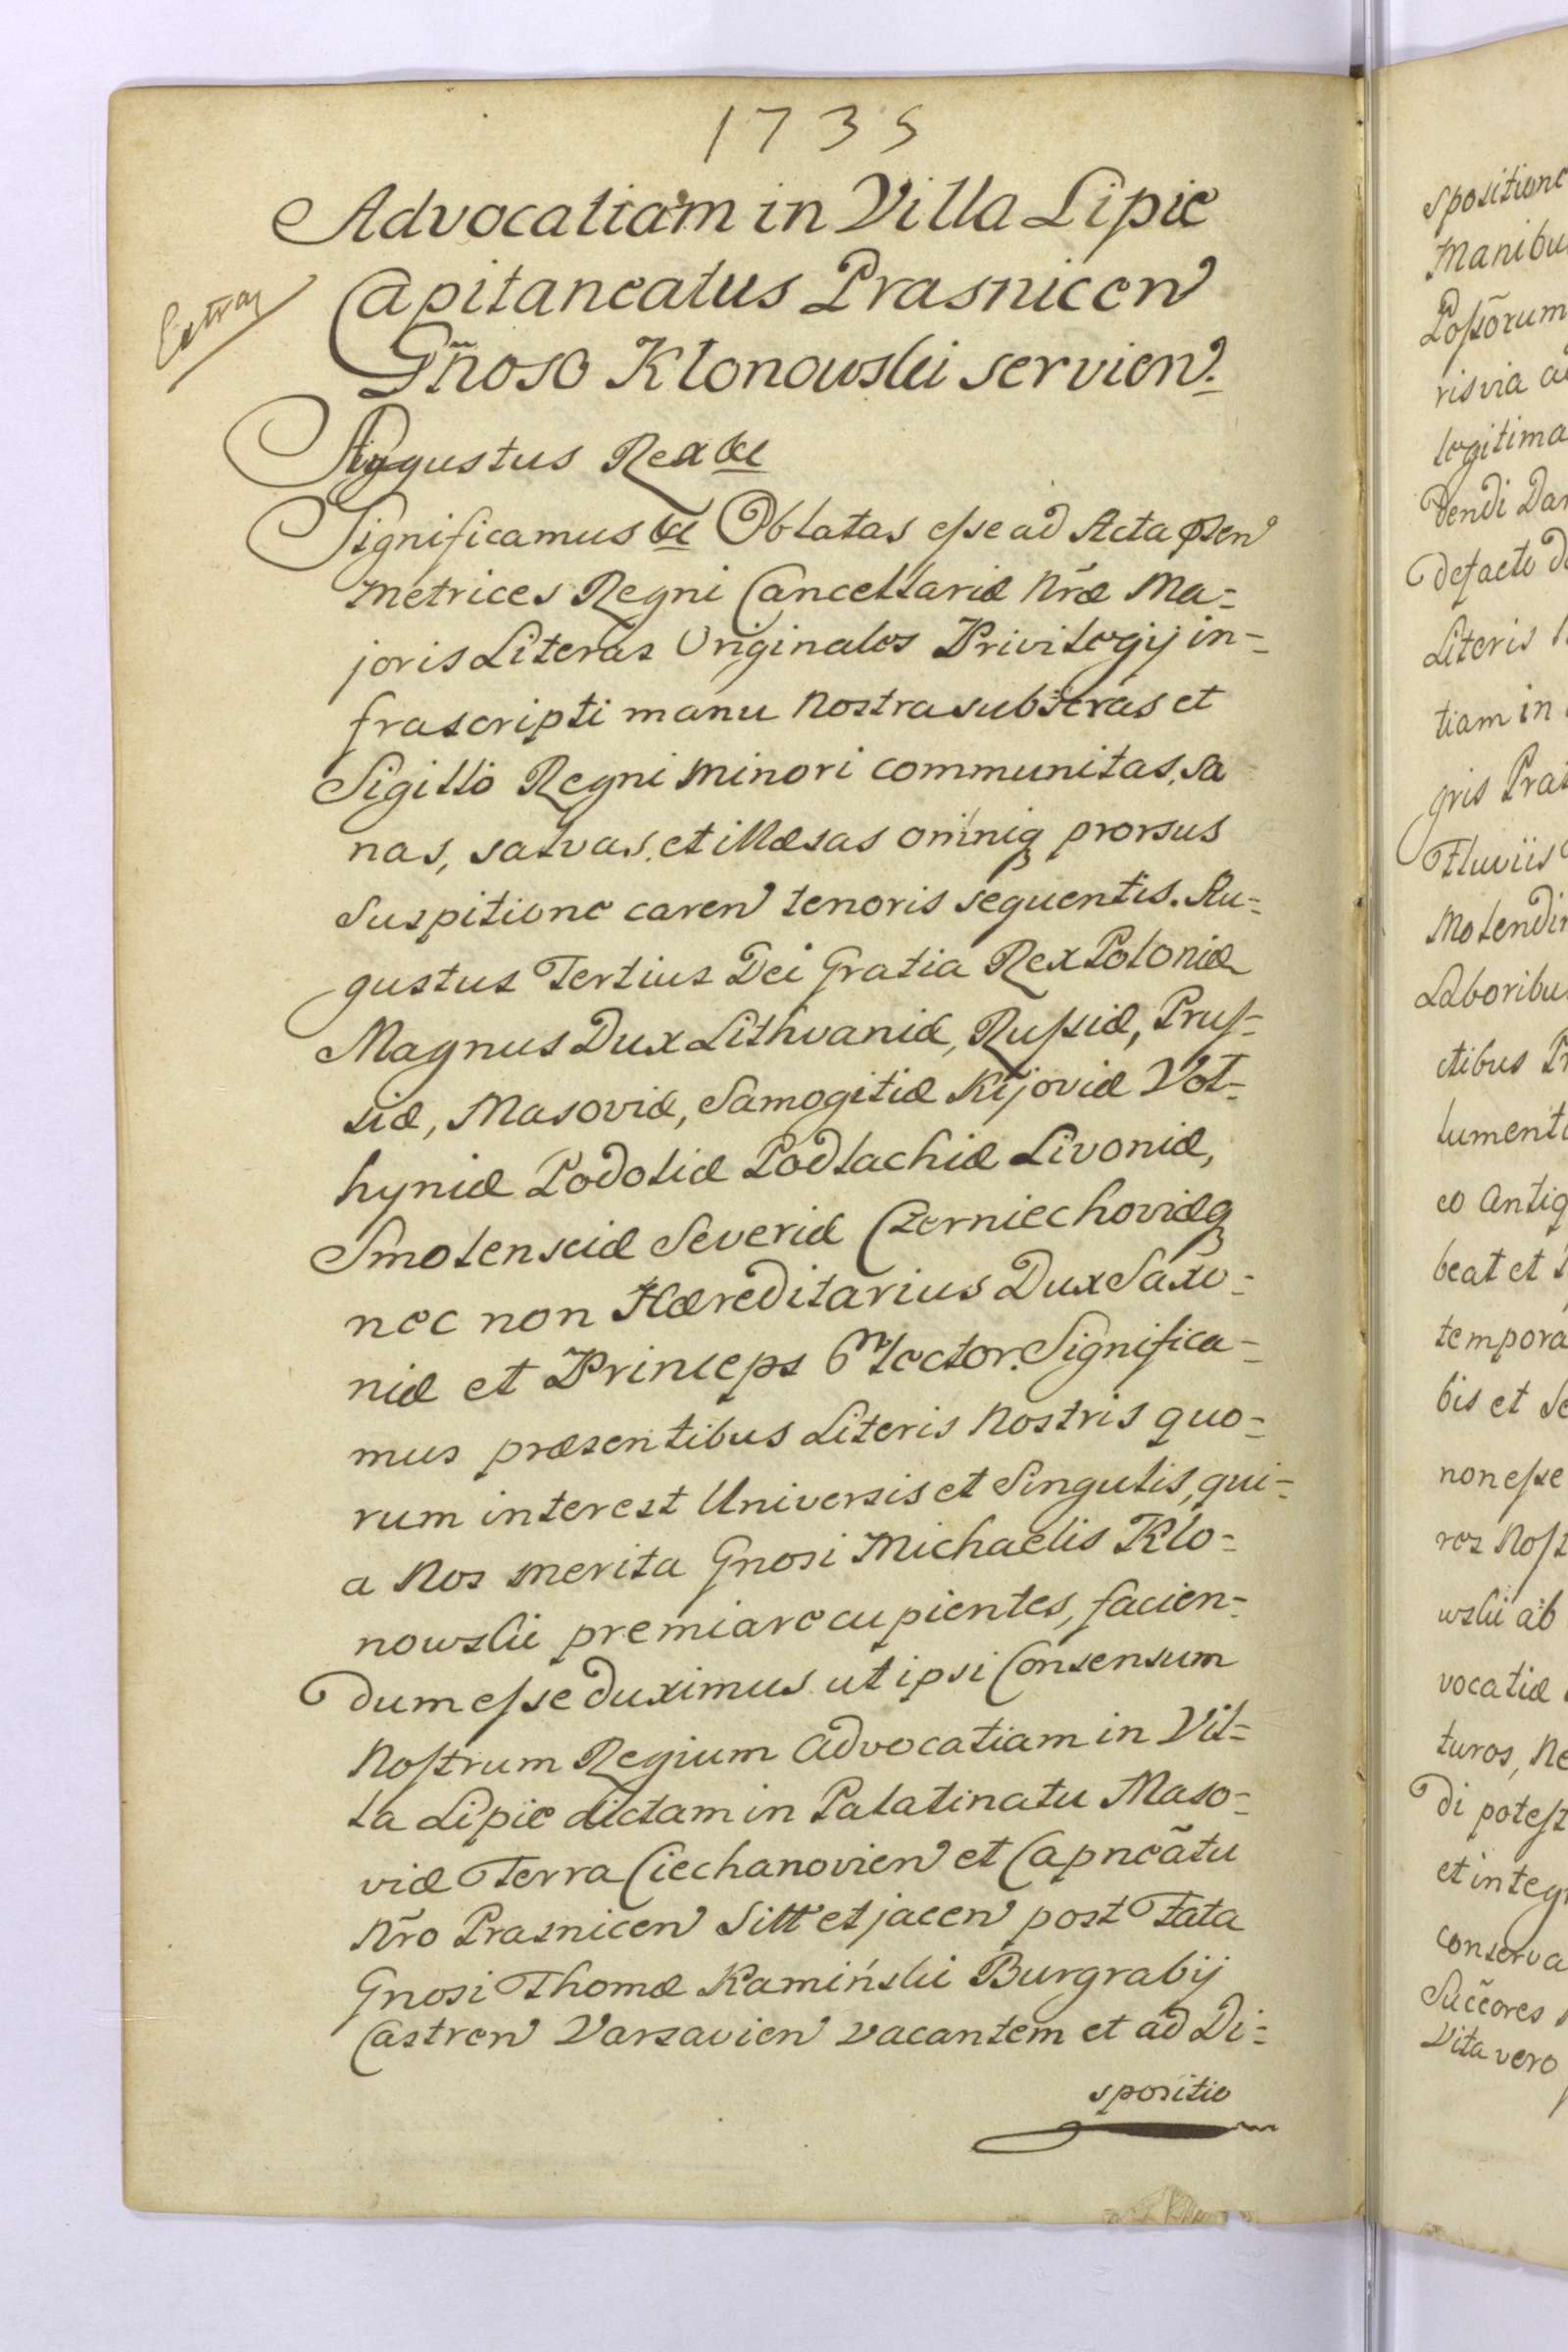 1735
Advocatiam in Villa Lipie
Capitaneatus Prasnicen
Gñoso Klonowski servien.
Augustus Rex &c
Significamus &c Oblatas esse ad Acta psen
Metrices Regni Cancellariæ Nræ Ma=
joris Literas Originales Privilegij in=
frascripti manu Nostra subscras et
Sigillo Regni Minori communitas, sa
nas, salvas, et illæsas omniq prorsus
Suspitione caren tenoris sequentis. Au=
gustus Tertius Dei Gratia Rex Poloniæ
Magnus Dux Lithvaniæ, Russiæ, Prus=
siæ, Masoviæ, Samogitiæ Kijoviæ Vol=
hyniæ Podoliæ Podlachiæ Livoniæ,
Smolensciæ Severiæ Czerniechoviæq
nec non Hæreditarius Dux Saxo=
niæ et Princeps Elector. Significa=
mus præsentibus Literis Nostris quo=
rum interest Universis et Singulis, qui=
a Nos merita Gnosi Michaelis Klo=
nowski premiare cupientes, facien=
dum esse duximus ut ipsi Consensum
Nostrum Regium Advocatiam in Vil=
la Lipie dictam in Palatinatu Maso=
viæ Terra Ciechanovien et Capneãtu
Nr̃o Prasnicen Sitt et jacen post Fata
Gnosi Thomæ Kamiński Burgrabij
Castren Varsavien vacantem et ad Di=
spositio
spositione
Manibu
Possõrum
ris via a
legitima
dendi Da
defacto d
Literis
tiam in
gris Pra
Fluviis
Molendi
Laboribu
ctibus Pr
lument
eo antiq
beat et
tempora
bis et Se
non esse
res Nost
wski ab
vocatiæ
turos, Ne
di potest
et integ
conserva
Succ̃ores
Vita vero